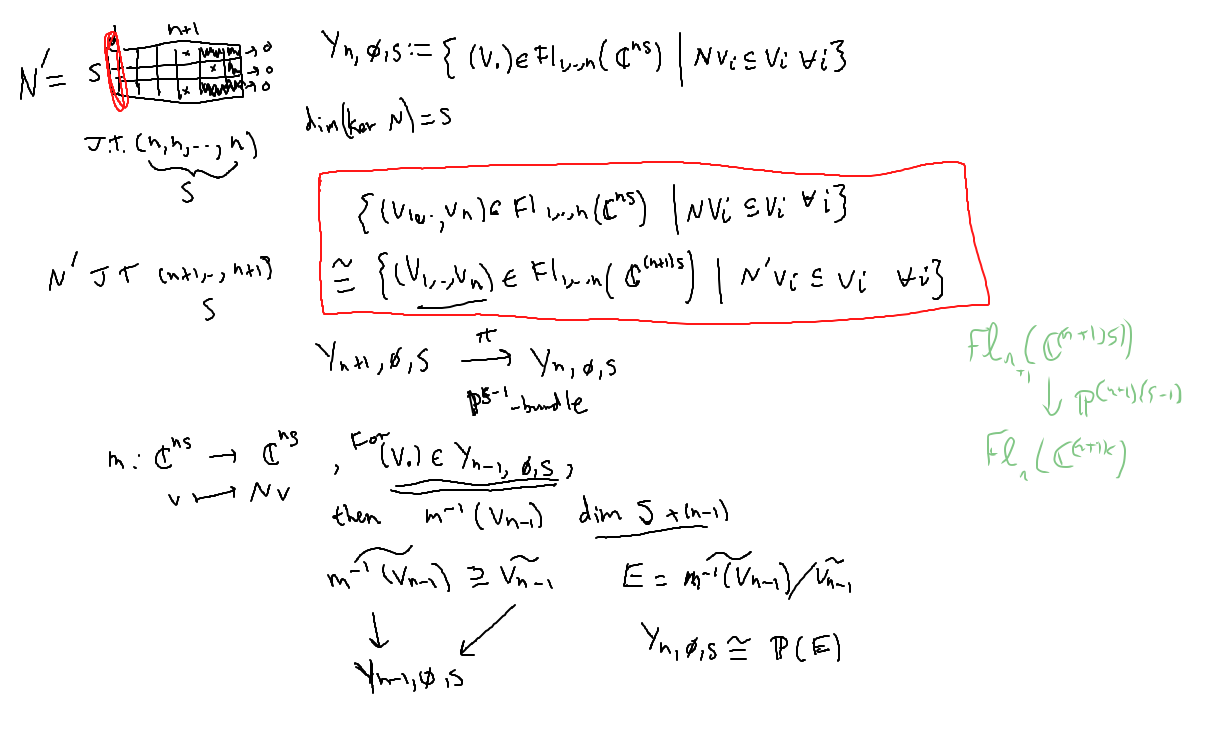 N' = S n+1 → 0 → 0 → 0
Y_{n,∅,S} := { (V.) ∈ Fl_{1,..,n}(ℂ^{ns}) | NV_i ⊆ V_i ∀i }
J.T. (n,n,...,n)
S
dim(ker N) = S
{ (V_1,...,V_n) ∈ Fl_{1,..,n}(ℂ^{ns}) | NV_i ⊆ V_i ∀i }
N' JT (n+1,..,n+1)
S
≅ { (V_1,..,V_n) ∈ Fl_{1,..,n}(ℂ^{(n+1)s}) | N'V_i ⊆ V_i ∀i }
Y_{n+1,∅,S} →^π Y_{n,∅,S}
ℙ^{s-1}-bundle
Fl_{n+1}(ℂ^{(n+1)s})
↓ ℙ^{(n+1)(s-1)}
Fl_n(ℂ^{(n+1)s})
m: ℂ^{ns} → ℂ^{ns}, For (V.) ∈ Y_{n-1,∅,S},
v ↦ Nv
then m^{-1}(V_{n-1}) dim S+(n-1)
\widetilde{m^{-1}(V_{n-1})} ⊇ \widetilde{V_{n-1}} E = \widetilde{m^{-1}(V_{n-1})}/\widetilde{V_{n-1}}
↓ ↙
Y_{n-1,∅,S}
Y_{n,∅,S} ≅ ℙ(E)